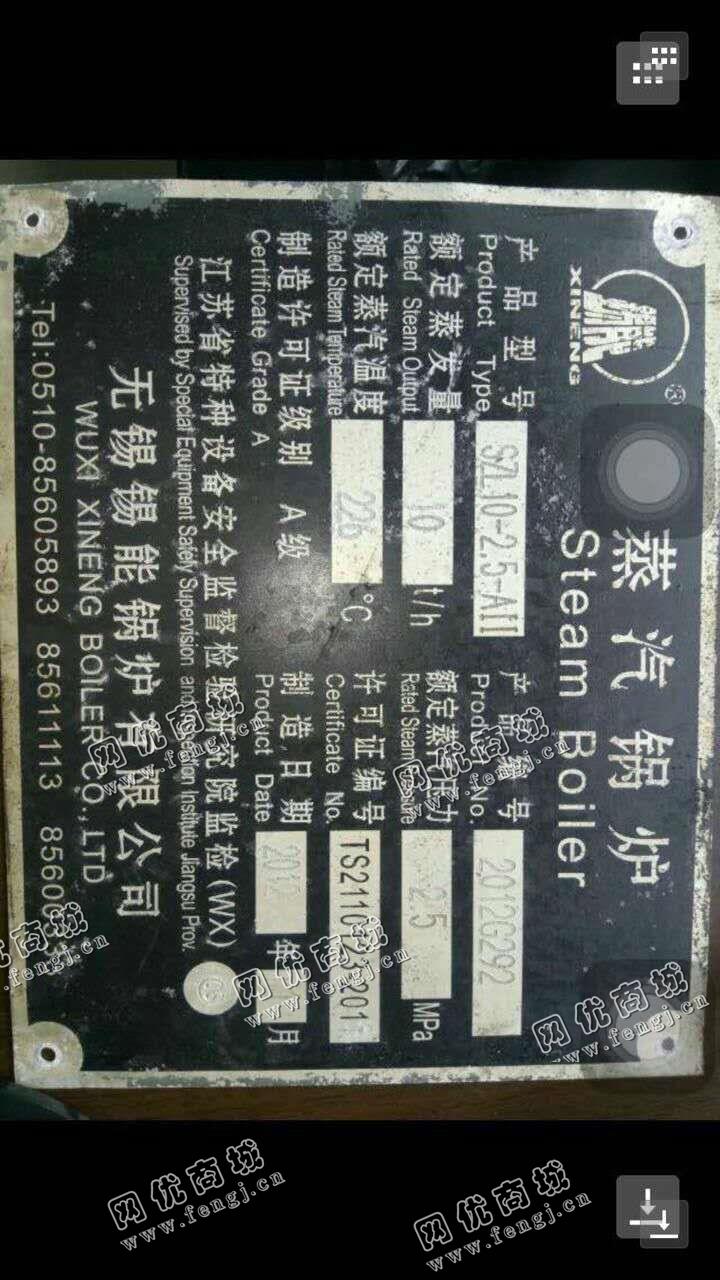 XINENG
®
蒸汽锅炉
Steam Boiler
产品型号 SZL10-2.5-AII 产品编号 2012G292
Product Type Product No.
额定蒸发量 10 t/h 额定蒸汽压力 2.5 MPa
Rated Steam Output Rated Steam Pressure
额定蒸汽温度 226 °C 许可证编号
Rated Steam Temperature Certificate No.
制造许可证级别 A级 制造日期 2012 年 月
Certificate Grade A Product Date
江苏省特种设备安全监督检验研究院监检(WX)
Supervised by Special Equipment Safety Supervision and Inspection Institute Jiangsu Prov.
无锡锡能锅炉有限公司
WUXI XINENG BOILER CO.,LTD
Tel:0510-85605893 85611113
网优商城
www.fengj.cn
网优商城
www.fengj.cn
网优商城
www.fengj.cn
网优商城
www.fengj.cn
网优商城
www.fengj.cn
网优商城
www.fengj.cn
网优商城
www.fengj.cn